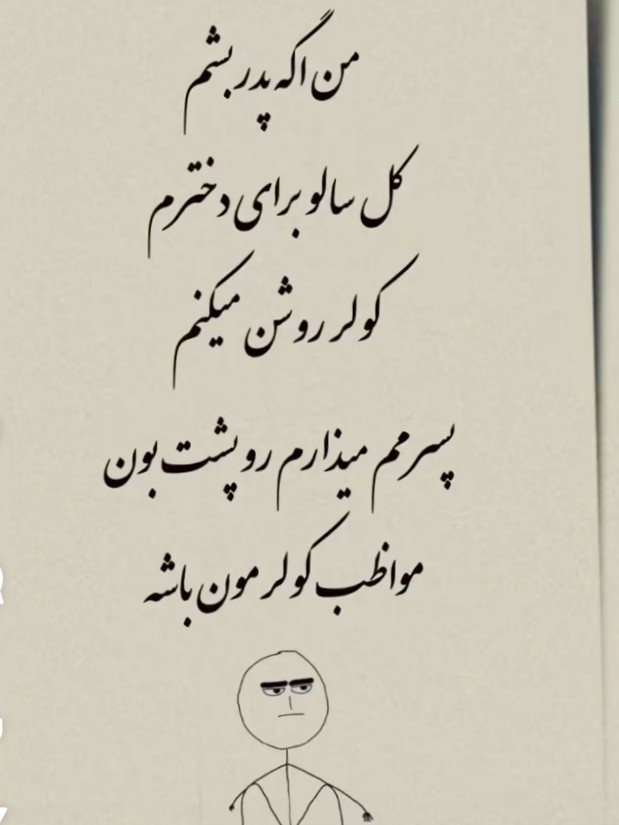 من اگه پدر بشم
کل سالو برای دخترم
کولر روشن میکنم
پسرمم میذارم رو پشت بون
مواظب کولرمون باشه